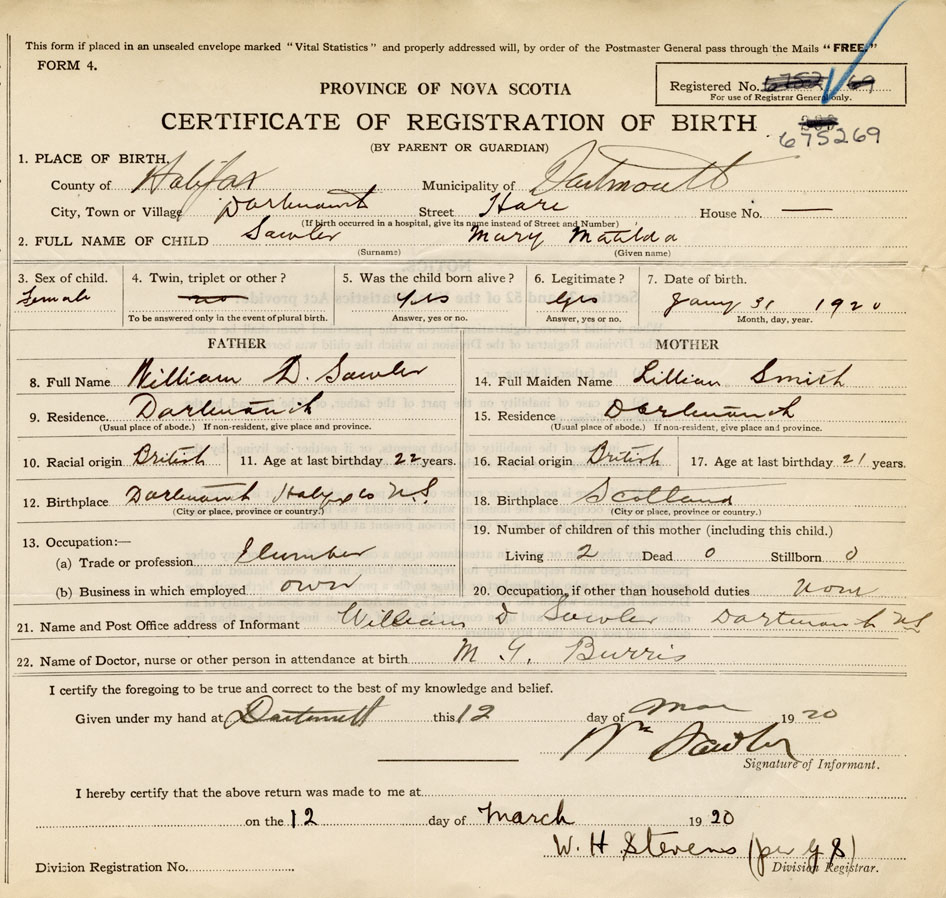 This form if placed in an unsealed envelope marked "Vital Statistics" and properly addressed will, by order of the Postmaster General pass through the Mails "FREE."
FORM 4.
Registered No. 69
For use of Registrar General only.
PROVINCE OF NOVA SCOTIA
CERTIFICATE OF REGISTRATION OF BIRTH
675269
(BY PARENT OR GUARDIAN)
1. PLACE OF BIRTH,
County of Halifax Municipality of Dartmouth
City, Town or Village Dartmouth Street Hare House No. —
(If birth occurred in a hospital, give its name instead of Street and Number)
2. FULL NAME OF CHILD Sawler Mary Matilda
(Surname) (Given name)
3. Sex of child. 4. Twin, triplet or other? 5. Was the child born alive? 6. Legitimate? 7. Date of birth.
Female no Yes Yes Jany 31 1920
To be answered only in the event of plural birth. Answer, yes or no. Answer, yes or no. Month, day, year.
FATHER MOTHER
8. Full Name William D. Sawler 14. Full Maiden Name Lillian Smith
9. Residence. Dartmouth 15. Residence Dartmouth
(Usual place of abode.) If non-resident, give place and province. (Usual place of abode.) If non-resident, give place and province.
10. Racial origin British 11. Age at last birthday 22 years. 16. Racial origin British 17. Age at last birthday 21 years.
12. Birthplace Dartmouth Halifax Co N.S. 18. Birthplace Scotland
(City or place, province or country.) (City or place, province or country.)
13. Occupation:— 19. Number of children of this mother (including this child.)
(a) Trade or profession Plumber Living 2 Dead 0 Stillborn 0
(b) Business in which employed own 20. Occupation, if other than household duties None
21. Name and Post Office address of Informant William D Sawler Dartmouth NS
22. Name of Doctor, nurse or other person in attendance at birth M G. Burris
I certify the foregoing to be true and correct to the best of my knowledge and belief.
Given under my hand at Dartmouth this 12 day of Mar 1920
Wm Sawler
Signature of Informant.
I hereby certify that the above return was made to me at
on the 12 day of March 1920
W. H. Stevens (per G S)
Division Registration No. Division Registrar.